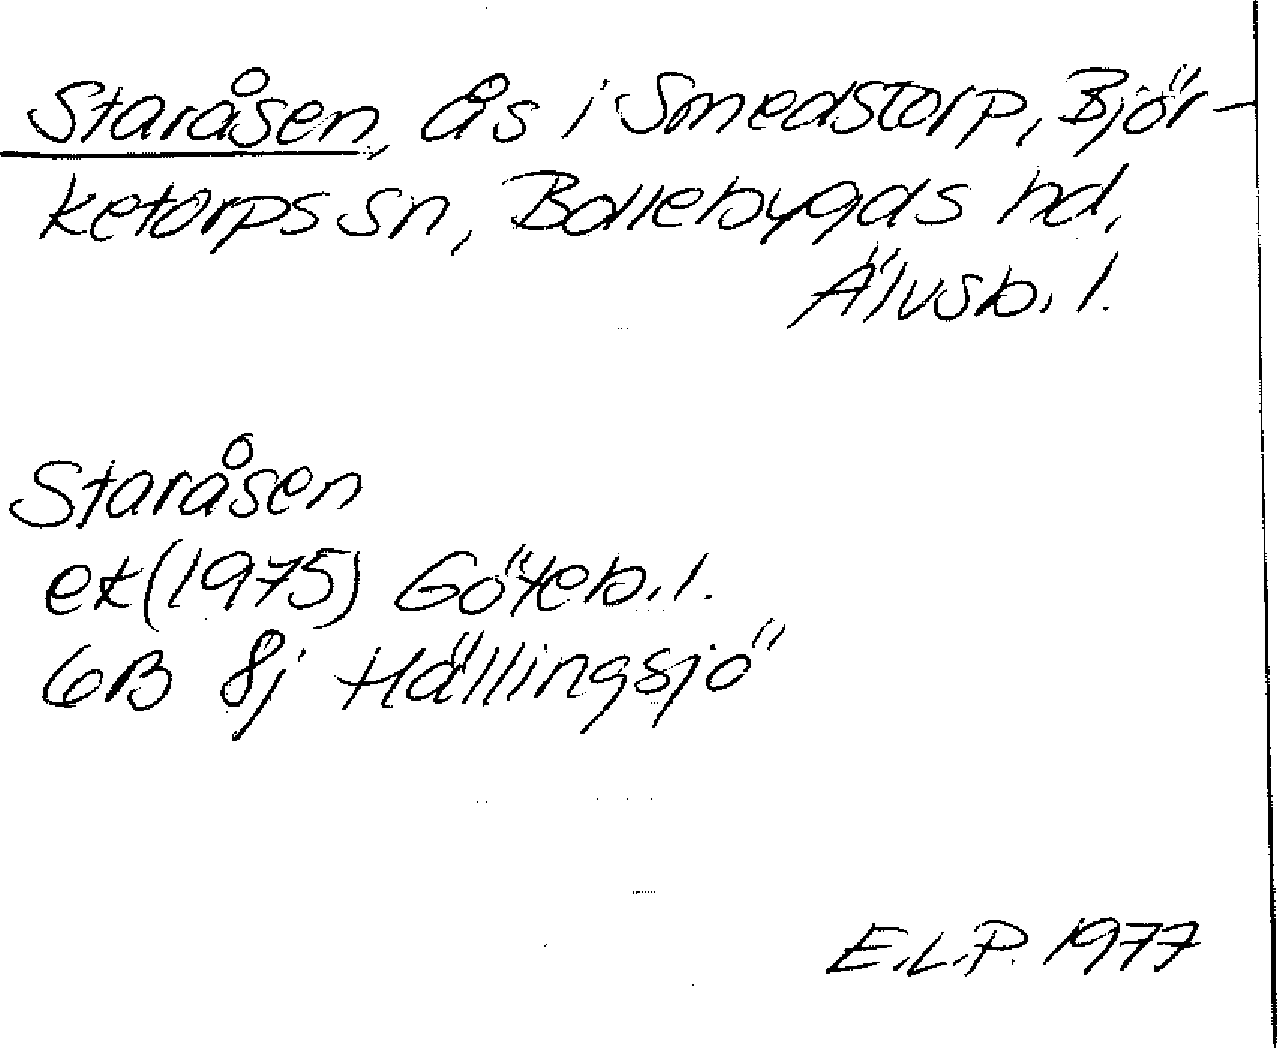 Staråsen, ås i Smedstorp, Björ-
ketorps sn, Bollebygds hd,
Älvsb. l.
Staråsen
ek (1975) Göteb. l.
6B 8j Hällingsjö
E.L.P. 1977